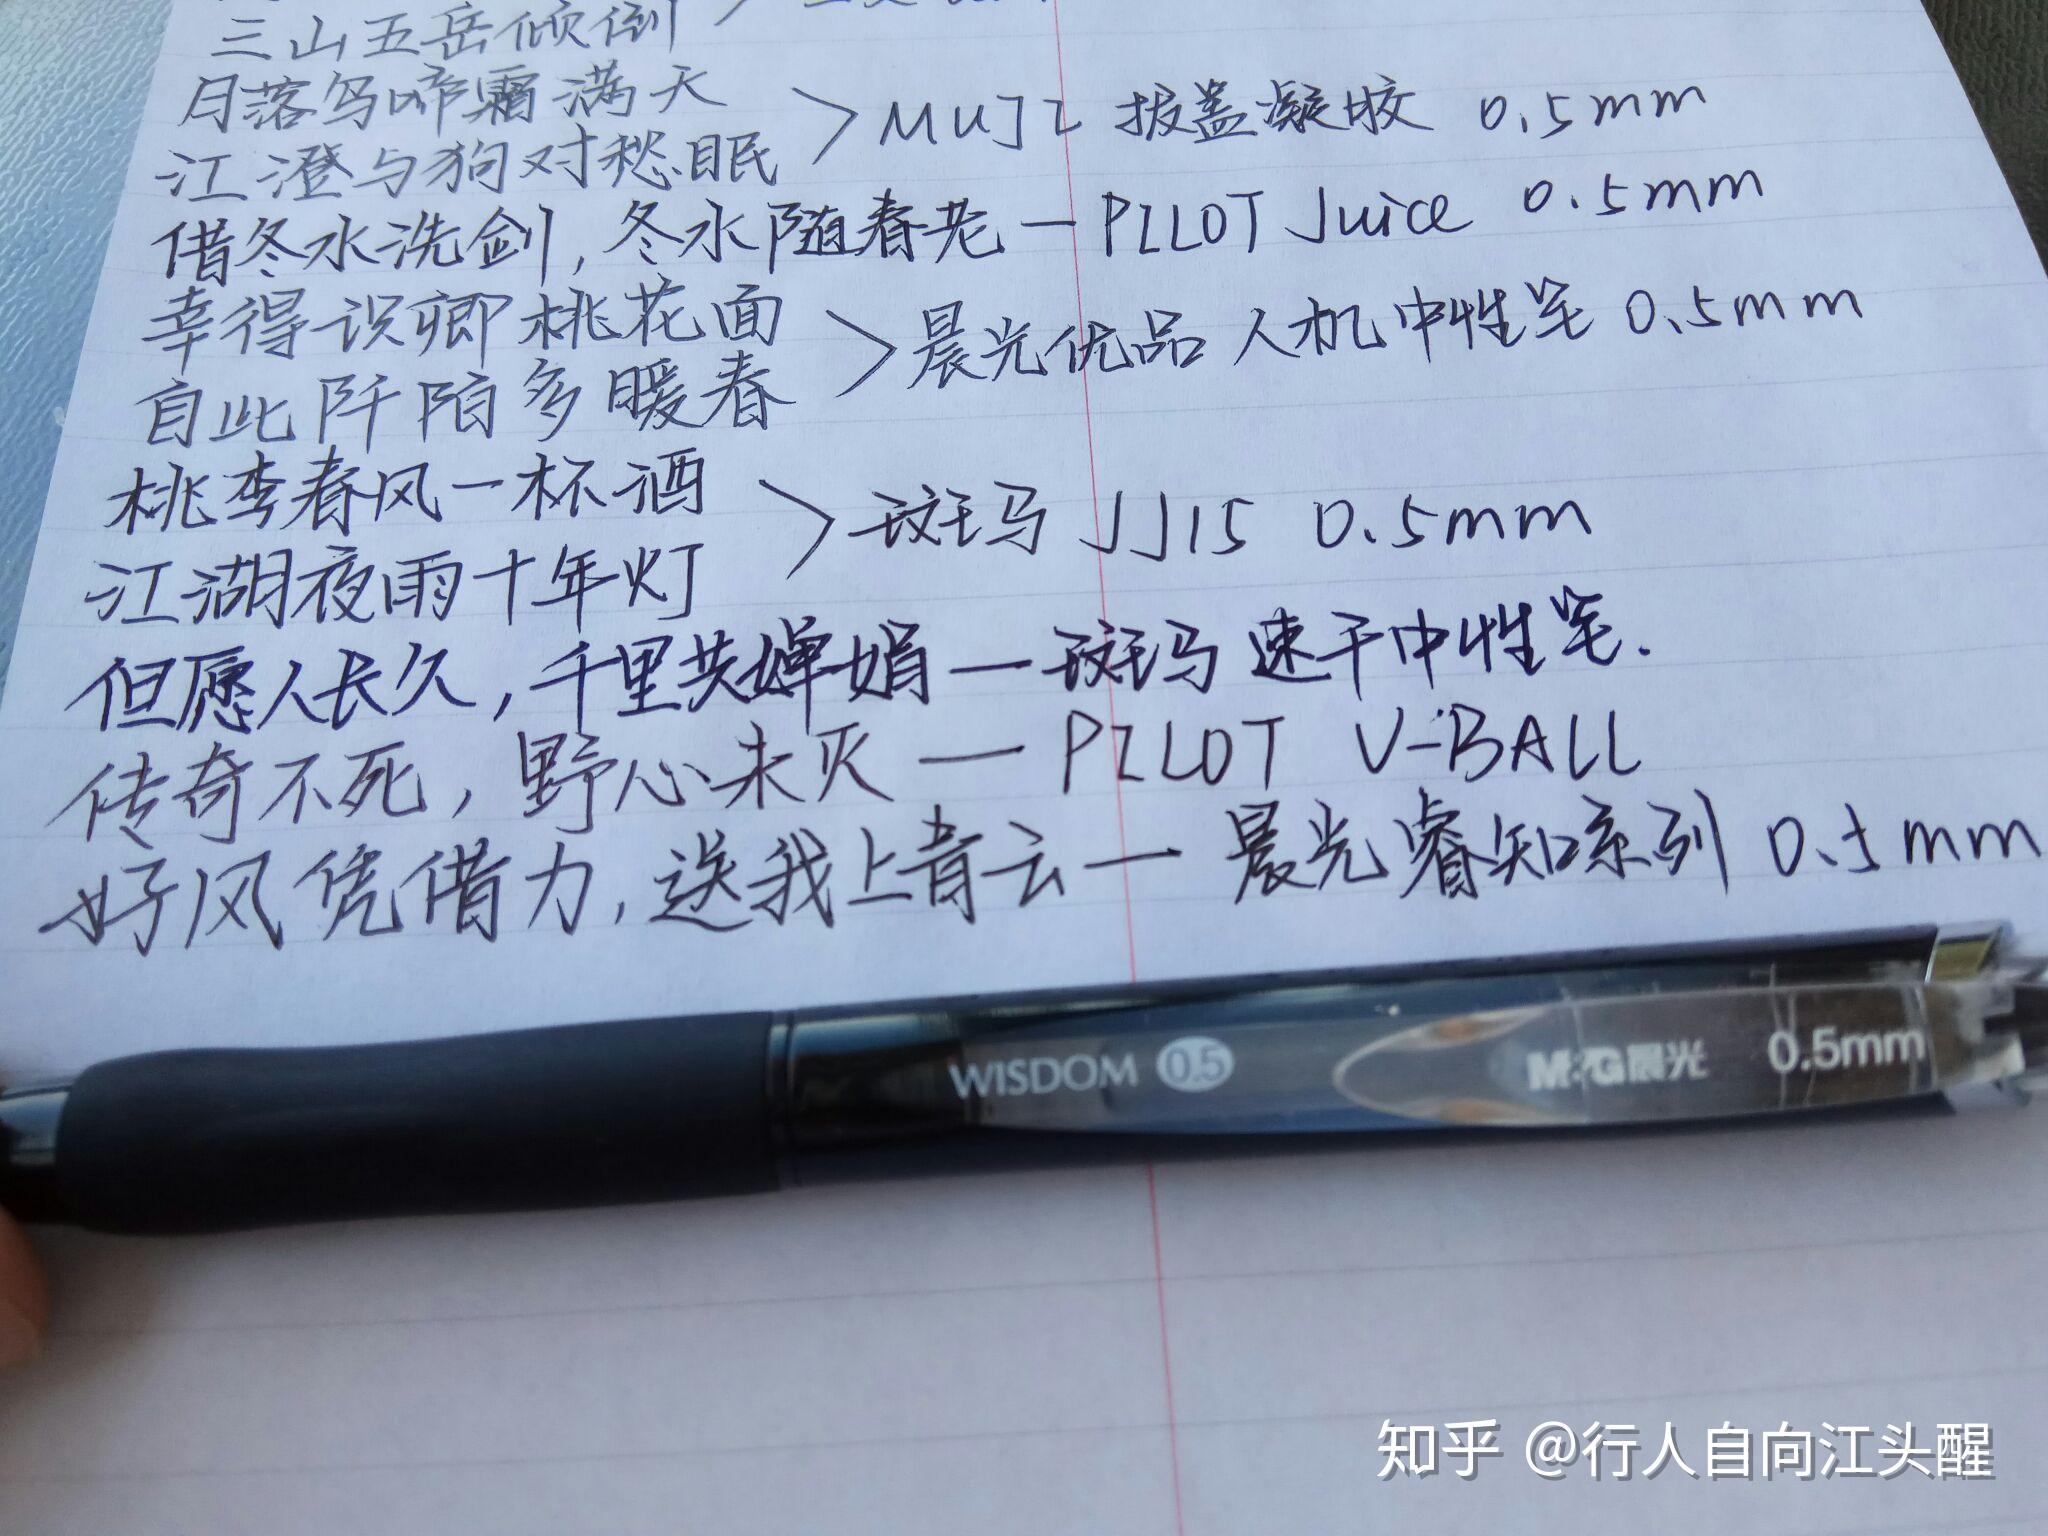 三山五岳倾倒
月落乌啼霜满天
江澄与狗对愁眠 > MUJI 拔盖凝胶 0.5mm
借冬水洗剑,冬水随春老 — PILOT Juice 0.5mm
幸得识卿桃花面
自此阡陌多暖春 > 晨光优品 人机中性笔 0.5mm
桃李春风一杯酒
江湖夜雨十年灯 > 斑马 JJ15 0.5mm
但愿人长久,千里共婵娟 — 斑马 速干中性笔.
传奇不死,野心未灭 — PILOT V-BALL
好风凭借力,送我上青云 — 晨光睿知系列 0.5mm
WISDOM 0.5 M&G晨光 0.5mm
知乎 @行人自向江头醒